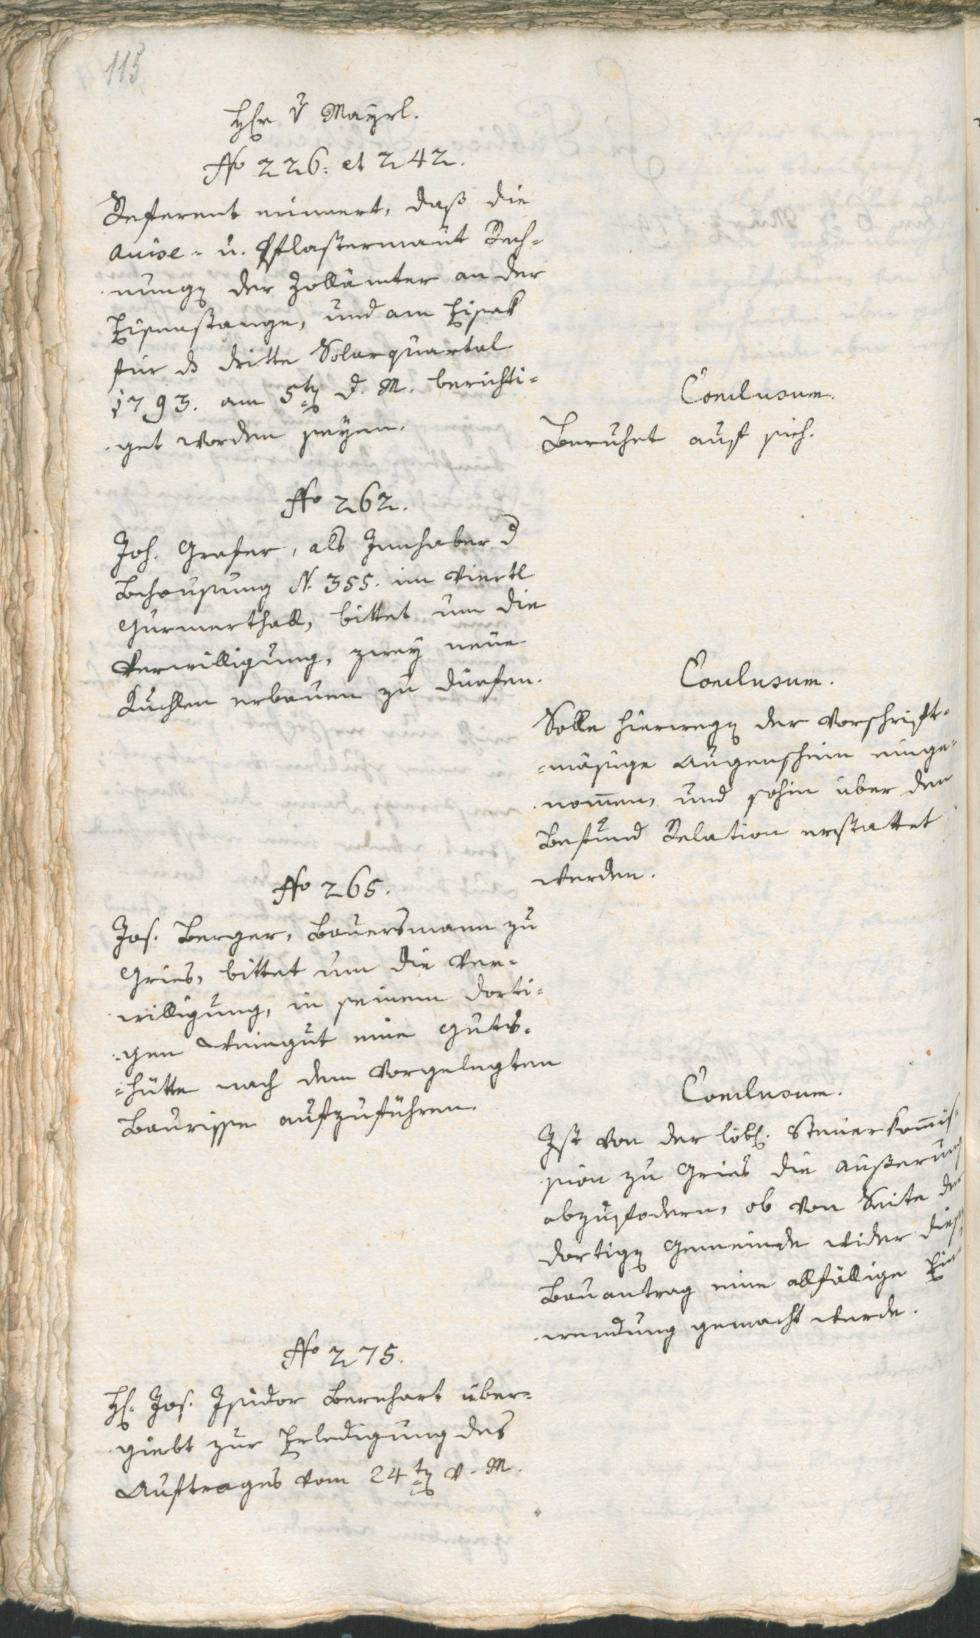 115
H͞r v Mayrl.
No 226. et 242.
Referent erinnert, daß die
Avise- u. Pflastermaut Rech-
nungen der Zollämter an der
Eisenstange, und am Eisak
für d dritte Solarquartal
1793. am 5ten d. M. berichti-
get worden seyen.
Conclusum.
Beruhet auf sich.
No 262.
Joh. Grafer, als Innhaber d
Behausung N. 355. im Viertl
Gurmerthall, bittet um die
Verwilligung, zwey neue
Kuchlen erbauen zu dürfen.
Conclusum.
Solle hierwegen der Vorschrift-
mäsige Augenschein einge-
nom̄en, und sohin über den
Befund Relation erstattet
werden.
No 265.
Jos. Berger, Bauersmann zu
Gries, bittet um die Ver-
willigung, in seinem dorti-
gen Weingut eine Guts-
hütte nach dem Vorgelegten
Baurisse aufzuführen.
Conclusum.
Ist von der löbl. Steuerkom̄is-
sion zu Gries die Äußerung
abzufodern, ob von Seite der
dortigen Gemeinde wider diesen
Bauantrag eine allfällige Ein
wendung gemacht werde.
No 275.
H. Jos. Isidor Bernhart über-
giebt zur Erledigung des
Auftrages vom 24ten v. M.